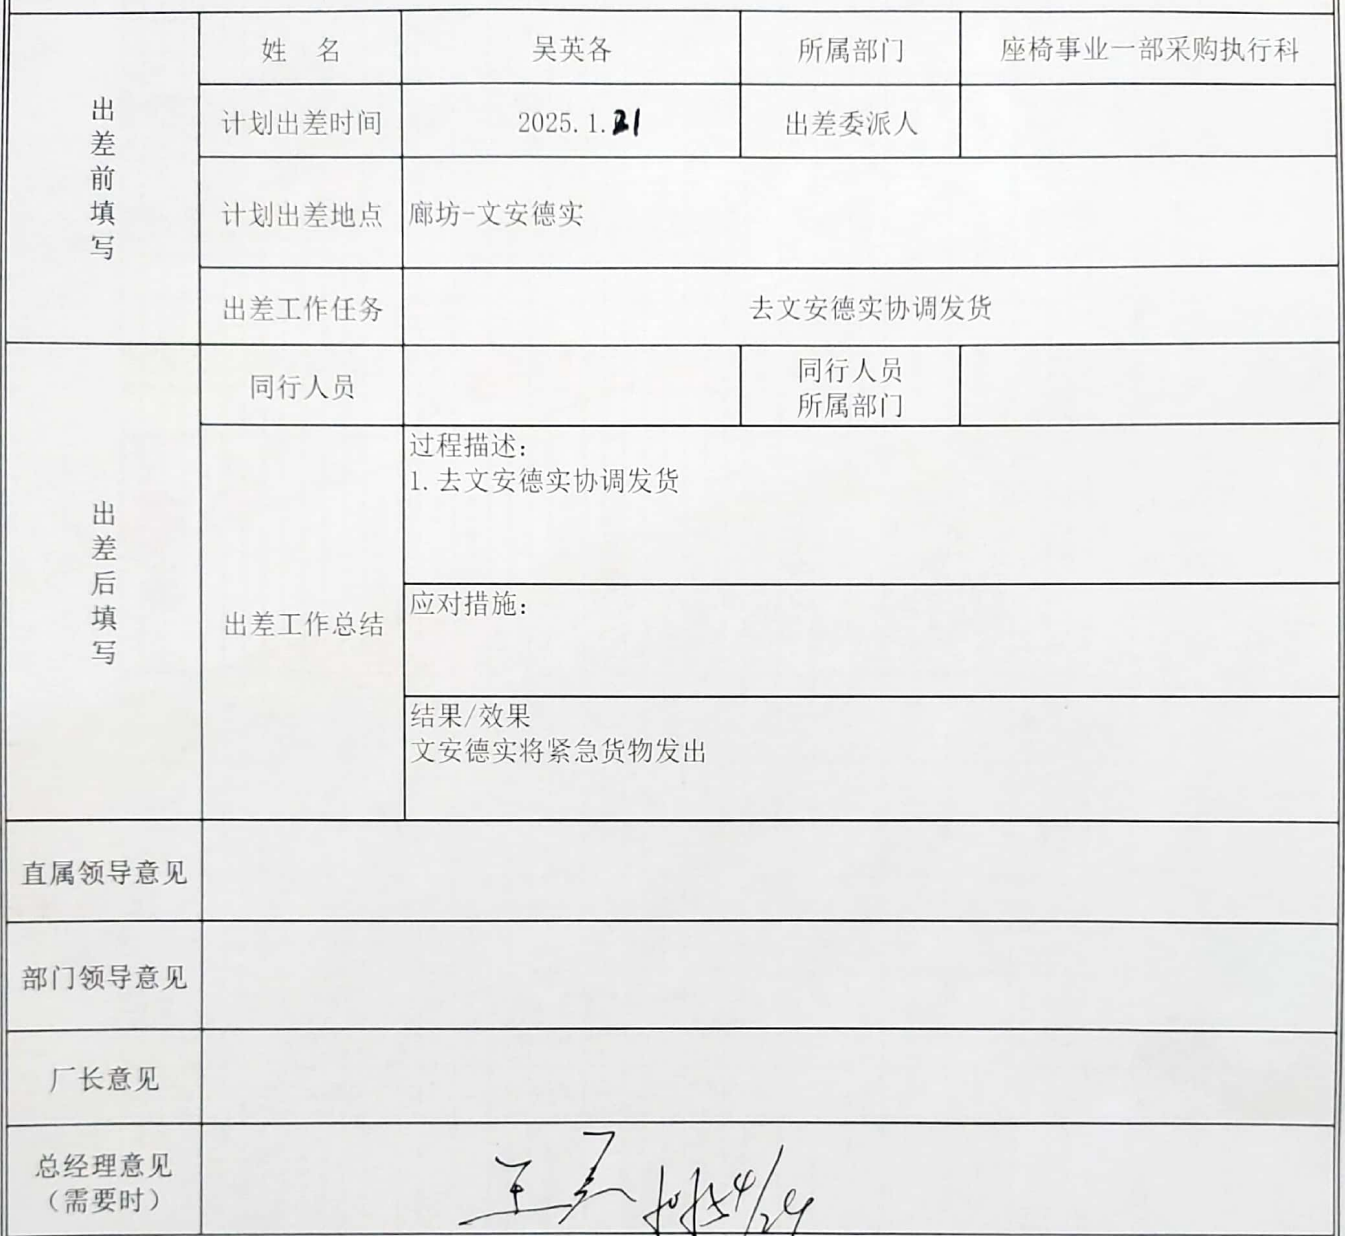 出差前填写
姓 名 吴英各 所属部门 座椅事业一部采购执行科
计划出差时间 2025.1.21 出差委派人
计划出差地点 廊坊-文安德实
出差工作任务 去文安德实协调发货
出差后填写
同行人员 同行人员
所属部门
出差工作总结
过程描述：
1.去文安德实协调发货
应对措施：
结果/效果
文安德实将紧急货物发出
直属领导意见
部门领导意见
厂长意见
总经理意见
（需要时）
王 2025 4/24